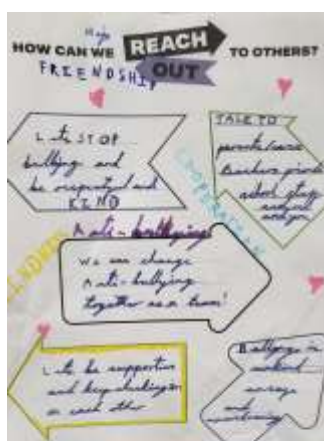 HOW CAN WE REACH OUT TO OTHERS?
FRIENDSHIP
Lets STOP
bullying and
be respectful and
KIND
TALK TO
parents/carers
Teachers
school staff
COOPERATION
Anti-bullying
KINDNESS
We can change
Anti-bullying
together as a team!
Lets be supportive
and keep checking in
on each other
Bullying is
unkind